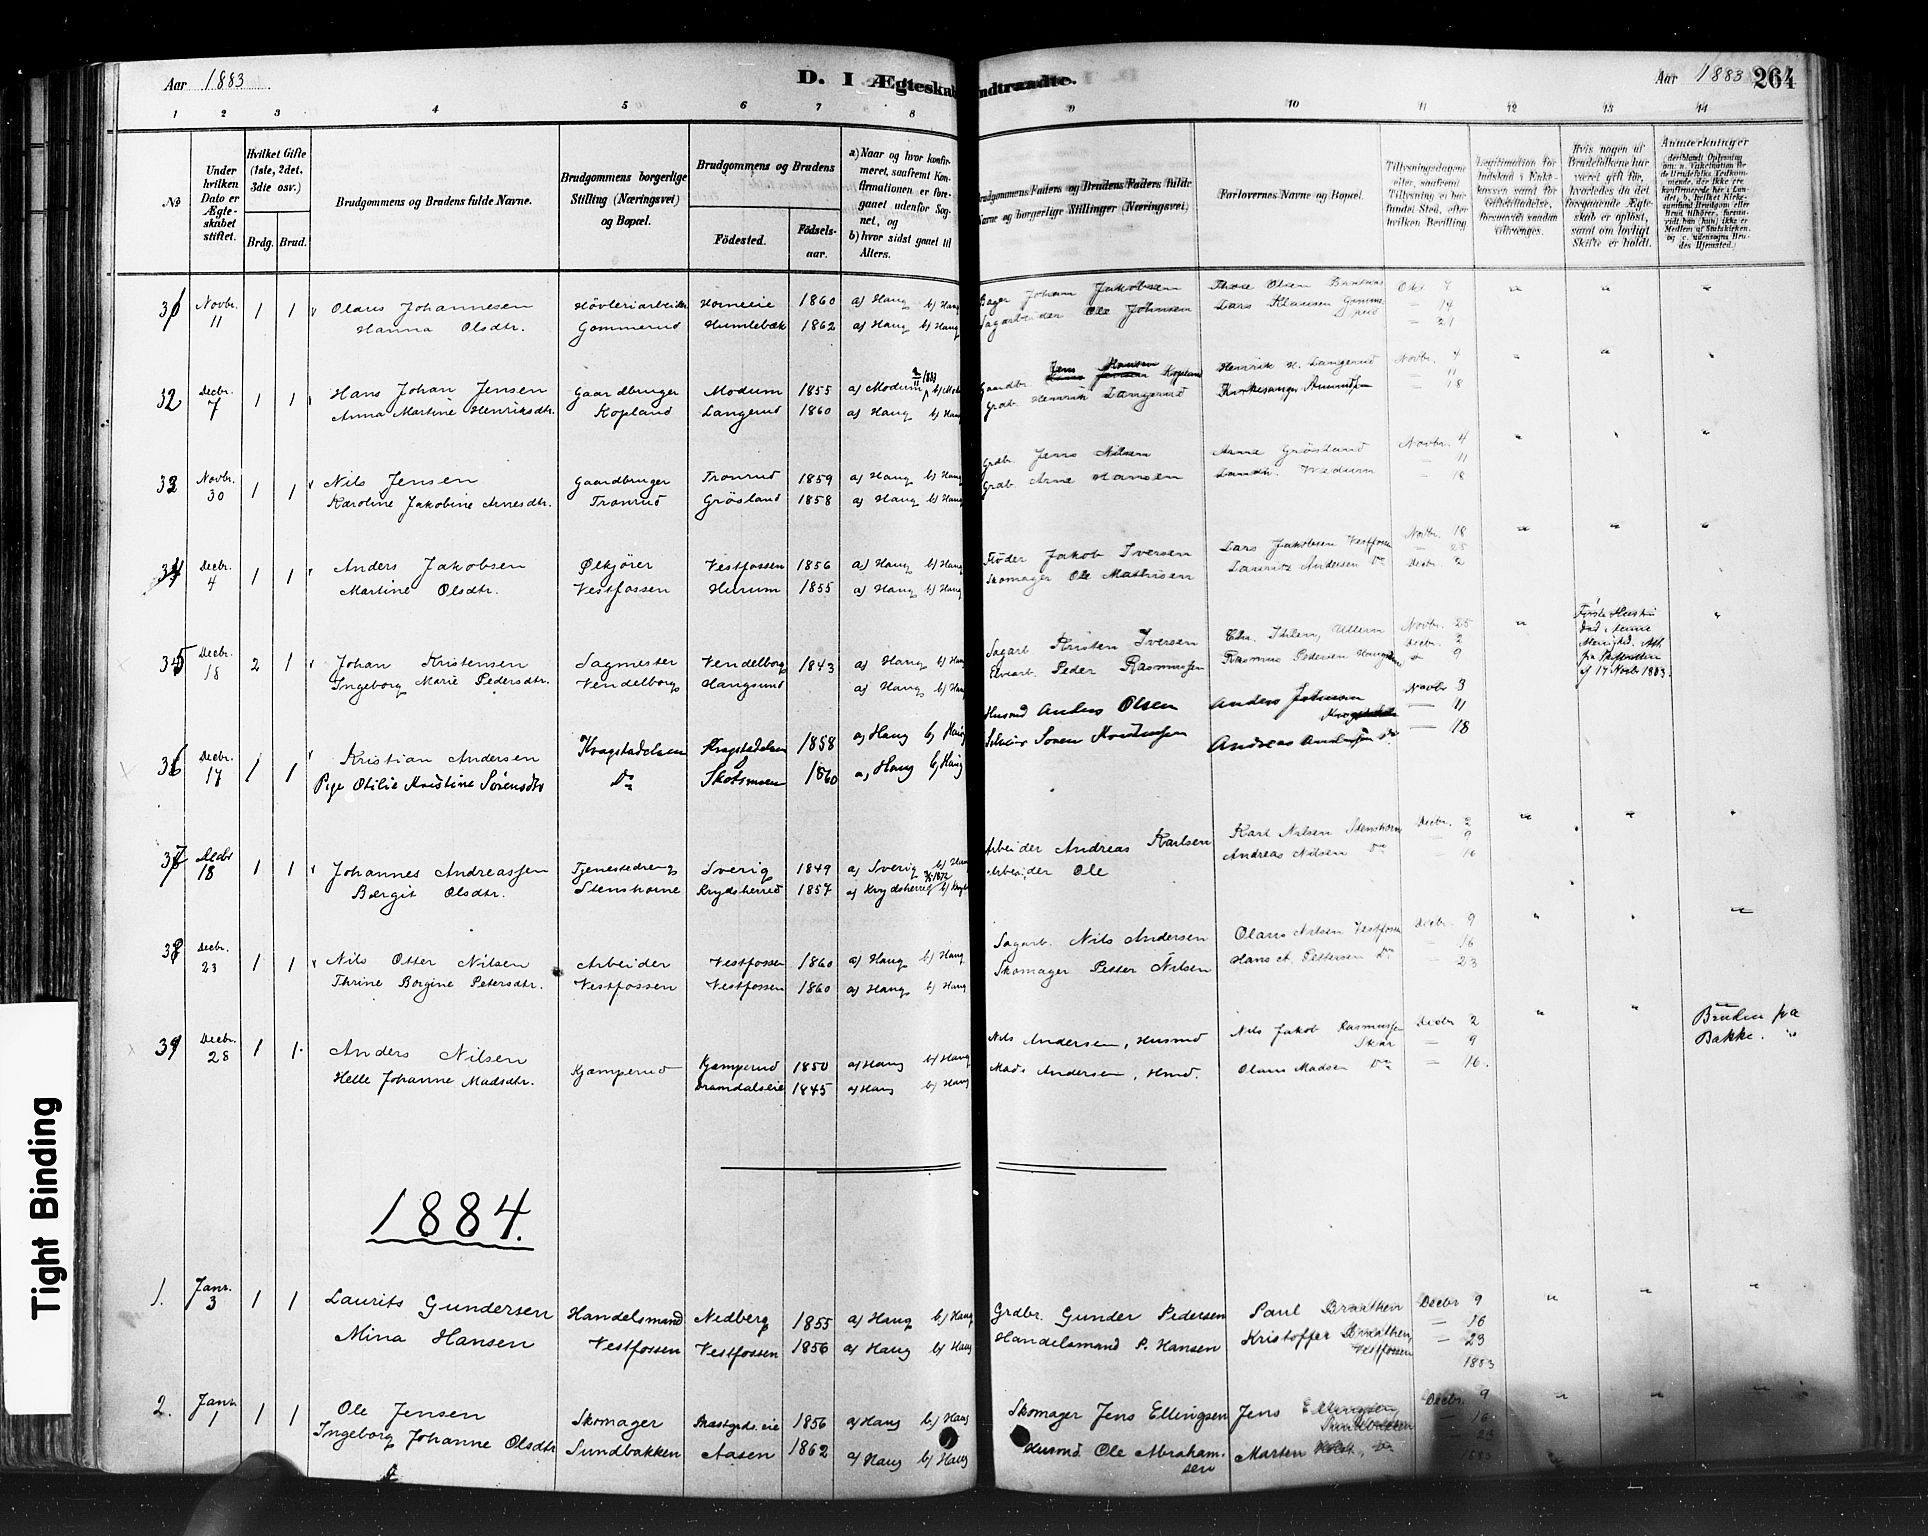 Aar 1883.
D. I Ægteskab indtraadte.
Aar 1883
264
1 2 3 4 5 6 7 8 9 10 11 12 13 14
No
Under hvilken Dato er Ægteskabet stiftet.
Hvilket Gifte (1ste, 2det, 3die osv.)
Brdg. Brud.
Brudgommens og Brudens fulde Navne.
Brudgommens borgerlige Stilling (Næringsvei) og Bopæl.
Brudgommens og Brudens
Fødested. Fødselsaar.
a) Naar og hvor konfirmeret, saafremt Konfirmationen er foregaaet udenfor Sognet, og
b) hvor sidst gaaet til Alters.
Brudgommens Faders og Brudens Faders fulde Navne og borgerlige Stillinger (Næringsvei)
Forlovernes Navne og Bopæl.
Tillysningsdagene eller, saafremt Tillysning ei har fundet Sted, efter hvilken Bevilling.
Hvis nogen af Brudefolkene har været gift før, hvorledes da det foregaaende Ægteskab er opløst, samt om lovligt Skifte er holdt.
Anmerkninger
31 Novbr. 11 1 1 Olaus Johannesen Høvleriarbeider Horneeie 1860 a) Haug b) Haug Bager Johan Jakobsen Thore Olsen Okt 7 " " "
Hanna Olsdtr. Gommerud Humlebæk 1862 a) Haug b) Haug Sagarbeider Ole Johnsen Lars Klausen — 14
— 21
32 Decbr. 7 1 1 Hans Johan Jensen Gaardbruger Modum 1855 a) Modum b) Gaardbr. Jens Hansen Kopland Henrik H. Langerud Novbr. 4 " " "
Anna Martine Henriksdtr. Kopland Langerud 1860 a) Haug b) Haug Grdb. Henrik Langerud Kirkesanger Amundsen — 11
— 18
33 Novbr. 30 1 1 Nils Jensen Gaardbruger Tronrud 1859 a) Haug b) Haug Grdb. Jens Nilsen Arne Grøsland Novbr. 4 " " "
Karoline Jakobine Arnesdtr. Tronrud Grøsland 1858 a) Haug b) Haug Grdb. Arne Hansen — 11
— 18
34 Decbr. 4 1 1 Anders Jakobsen Ølkjører Vestfossen 1856 a) Haug b) Haug Fløder Jakob Iversen Lars Jakobsen Vestfossen Novbr. 18 " " "
Martine Olsdtr. Vestfossen Hurum 1855 a) Haug b) Haug Skomager Ole Mathisen Lauritz Andersen Do — 25
Decbr. 2
35 Decbr. 18 2 1 Johan Kristensen Sagmester Vendelborg 1843 a) Haug b) Haug Sagarb. Kristen Iversen Novbr. 25 "
Ingeborg Marie Pedersdtr. Vendelborg Haugsund a) Haug b) Haug Peder Rasmussen Rasmus Pedersen Decbr. 2
9
af 17 Novbr 1883.
36 Decbr. 17 1 1 Kristian Andersen Kragstadelsen Kragstadelsen 1858 a) Haug b) Haug Husmd Anders Olsen Anders Johnson Novbr 3
Pige Otilie Kristine Sørensdtr Do Skotsmoen 1860 a) Haug b) Haug Soren Andreas — 11
— 18
37 Decbr 18 1 1 Johannes Andreassen Tjenestedreng Sverig 1849 a) Sverig b) Haug Arbeider Andreas Karlsen Karl Nilsen Stenshorne Decbr. 2 " " "
Bergit Olsdtr. Stenshorne Krydsherred 1857 a) Krydsherred Arbeider Ole Andreas Nilsen Do — 9
— 16
38 Decbr. 23 1 1 Nils Otter Nilsen Arbeider Vestfossen 1860 a) Haug b) Haug Sagarb. Nils Andersen Olaus Nilsen Vestfossen Decbr. 9 " " "
Thrine Borgine Petersdtr. Vestfossen Vestfossen 1860 a) Haug b) Haug Skomager Petter Nilsen Hans A. Pettersen Do — 16
— 23
39 Decbr. 28 1 1. Anders Nilsen Kjæmperud Kjæmperud 1850 a) Haug b) Haug Nils Andersen, Husmd Nils Jakob Rasmussen Skar Decbr 2 " " Bruden fra Bakke.
Helle Johanne Madsdtr. Dramdalseie 1845 a) Haug b) Haug Mads Andersen, Hmd. Olaus Madsen Do — 9
— 16.
1884.
1. Janr. 3 1 1 Laurits Gundersen Handelsmand Nedberg 1855 a) Haug b) Haug Grdbr. Gunder Pedersen Paul Braathen Decbr 9 " " "
Mina Hansen Vestfossen Vestfossen 1856 a) Haug b) Haug Handelsmand P. Hansen Kristoffer Braathen, Vestfossen — 16
— 23
1883
2. Janr. 1 1 1 Ole Jensen Skomager 1856 a) Haug b) Haug Skomager Jens Ellingsen Jens Ellingsen, Sundbakken Decbr. 9 " " "
Ingeborg Johanne Olsdtr Sundbakken Aasen 1862 a) Haug b) Haug Husmd. Ole Abrahamsen Morten Do — 16
— 23
1883
Tight Binding